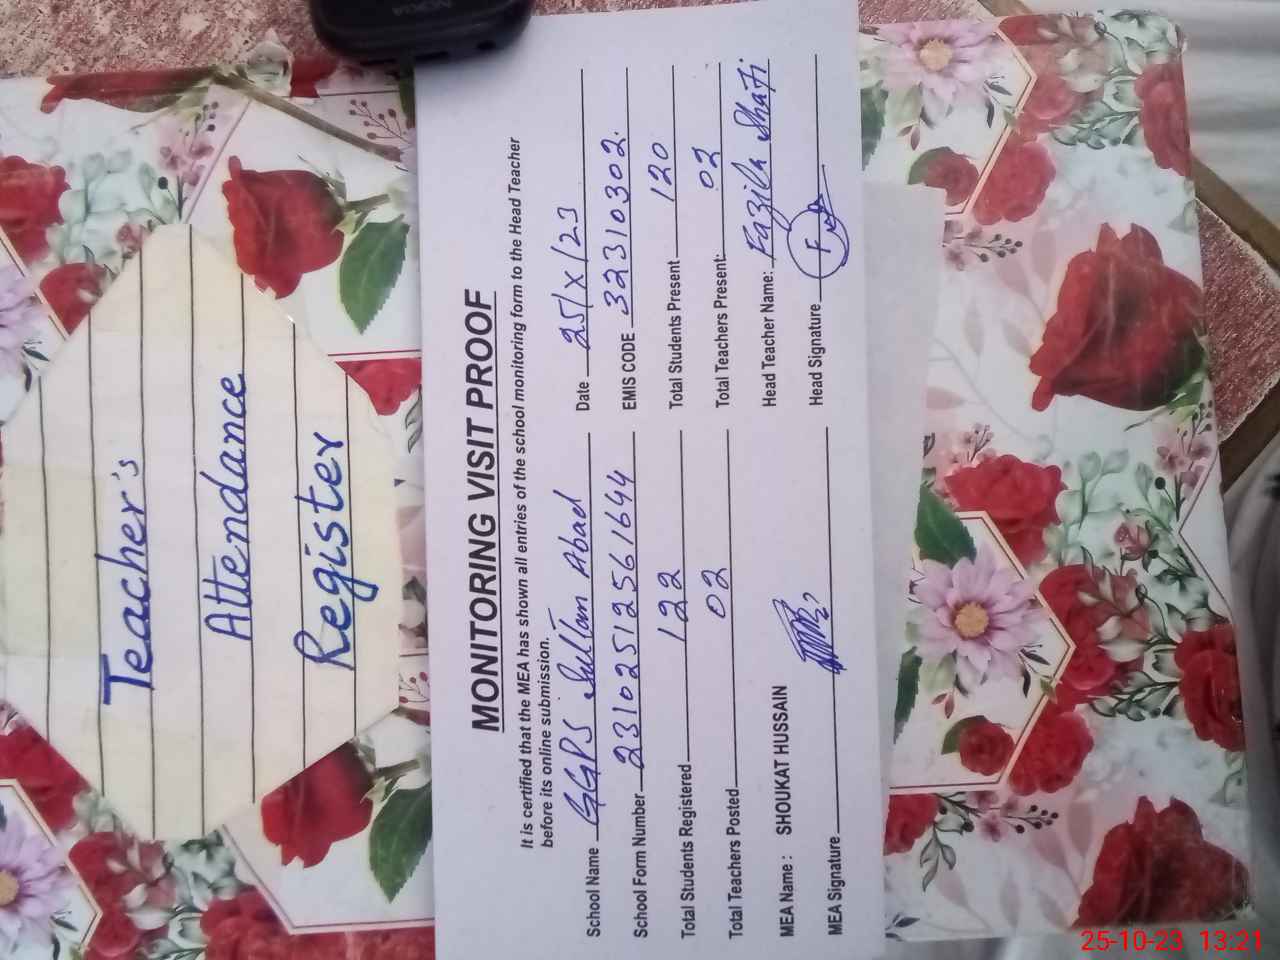 NOKIA
Teacher's
Attendance
Register
MONITORING VISIT PROOF
It is certified that the MEA has shown all entries of the school monitoring form to the Head Teacher
before its online submission.
School Name GGPS Sultan Abad Date 25/X/23
School Form Number 23102512561644 EMIS CODE 32310302.
Total Students Registered 122 Total Students Present 120
Total Teachers Posted 02 Total Teachers Present: 02
MEA Name : SHOUKAT HUSSAIN Head Teacher Name: Fazila Shafi
MEA Signature Head Signature
25-10-23 13:21